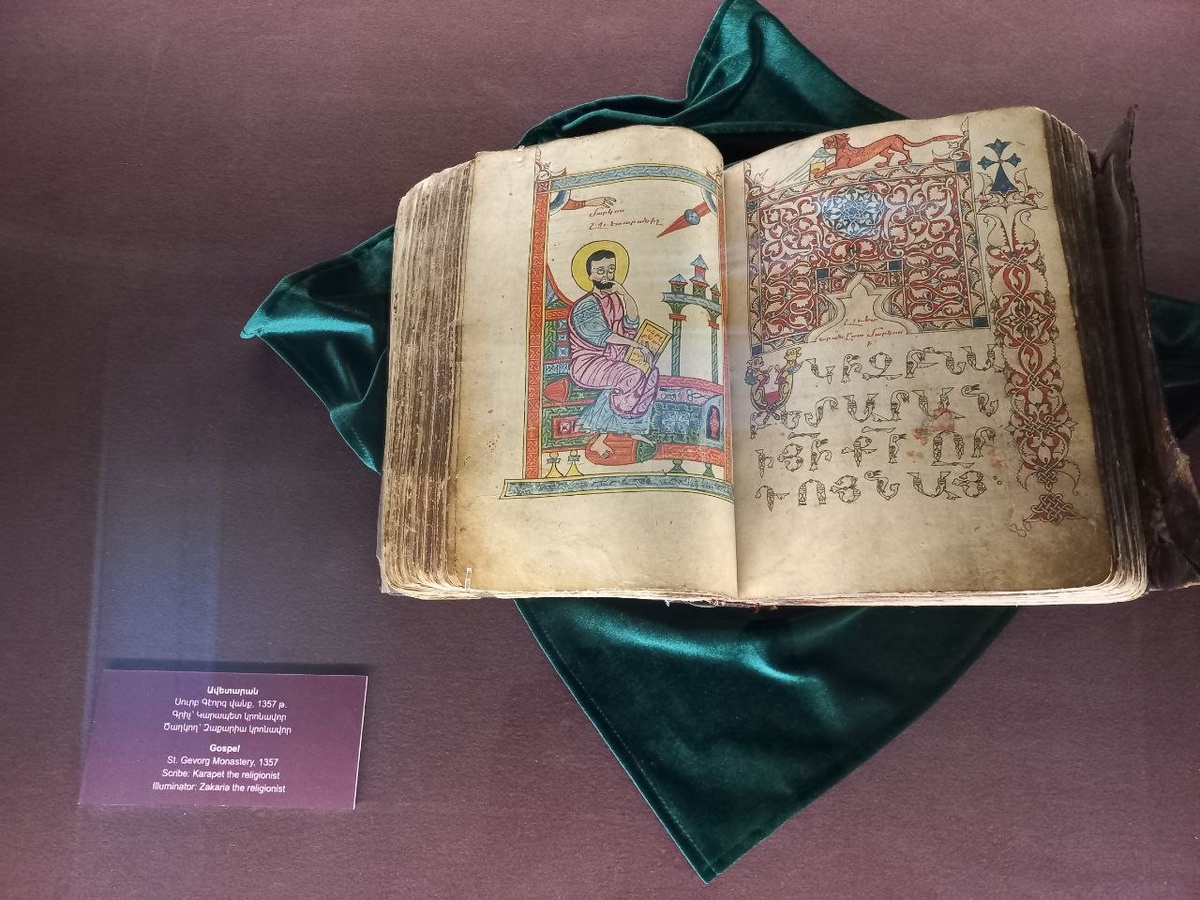 Մարկոս
ՍԿԻԶԲՆ ԱՒ
ԵՏԱՐԱՆ
Ի ՅԻ ՔԻ ՈՐ
Ավետարան
Սուրբ Գէորգ վանք, 1357 թ.
Գրիչ՝ Կարապետ կրոնավոր
Ծաղկող՝ Զաքարիա կրոնավոր
Gospel
St. Gevorg Monastery, 1357
Scribe: Karapet the religionist
Illuminator: Zakaria the religionist